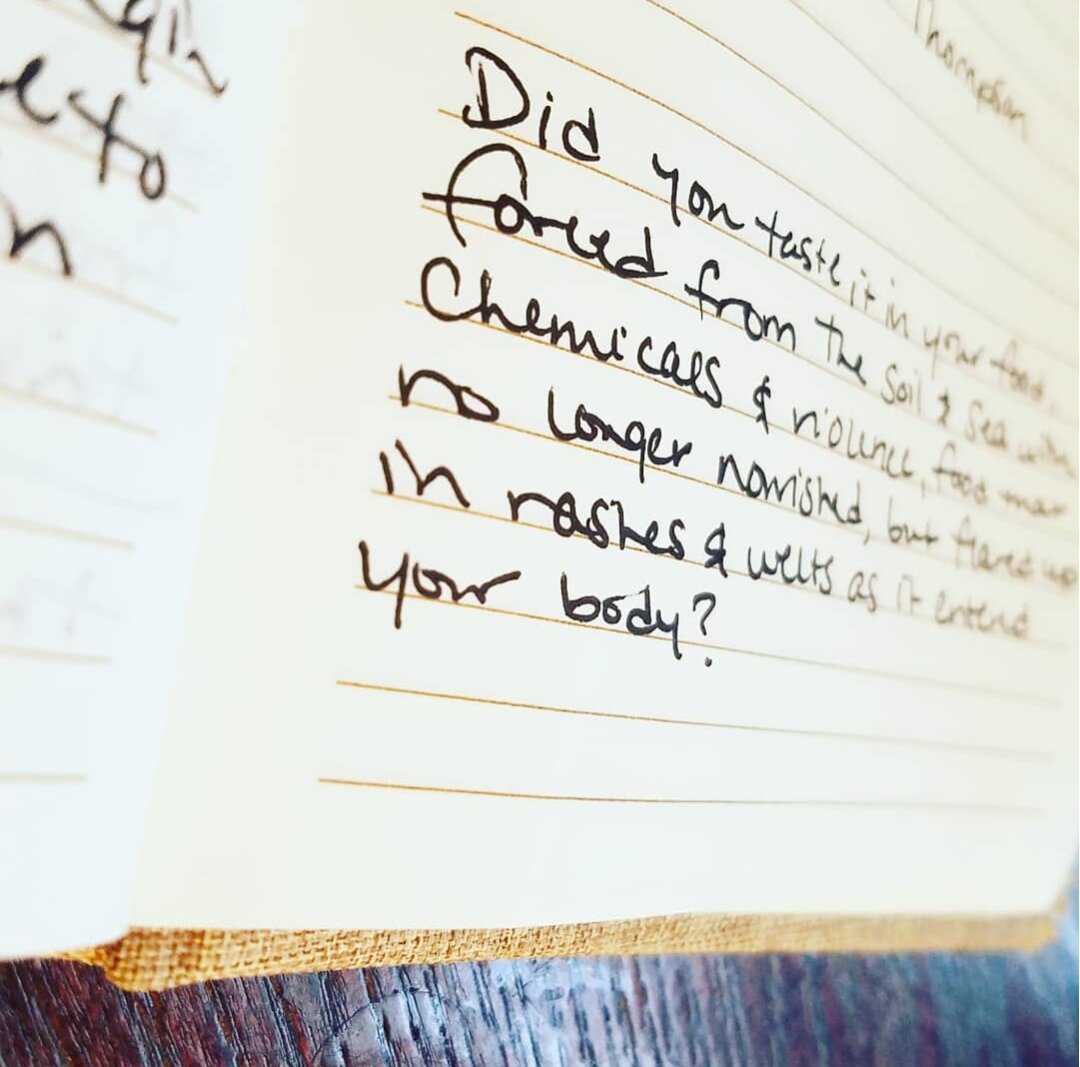 Thompson
Did you taste it in your food,
forced from the soil & sea with
Chemicals & violence, food that
no longer nourished, but flared up
in rashes & welts as it entered
your body?
esto
n